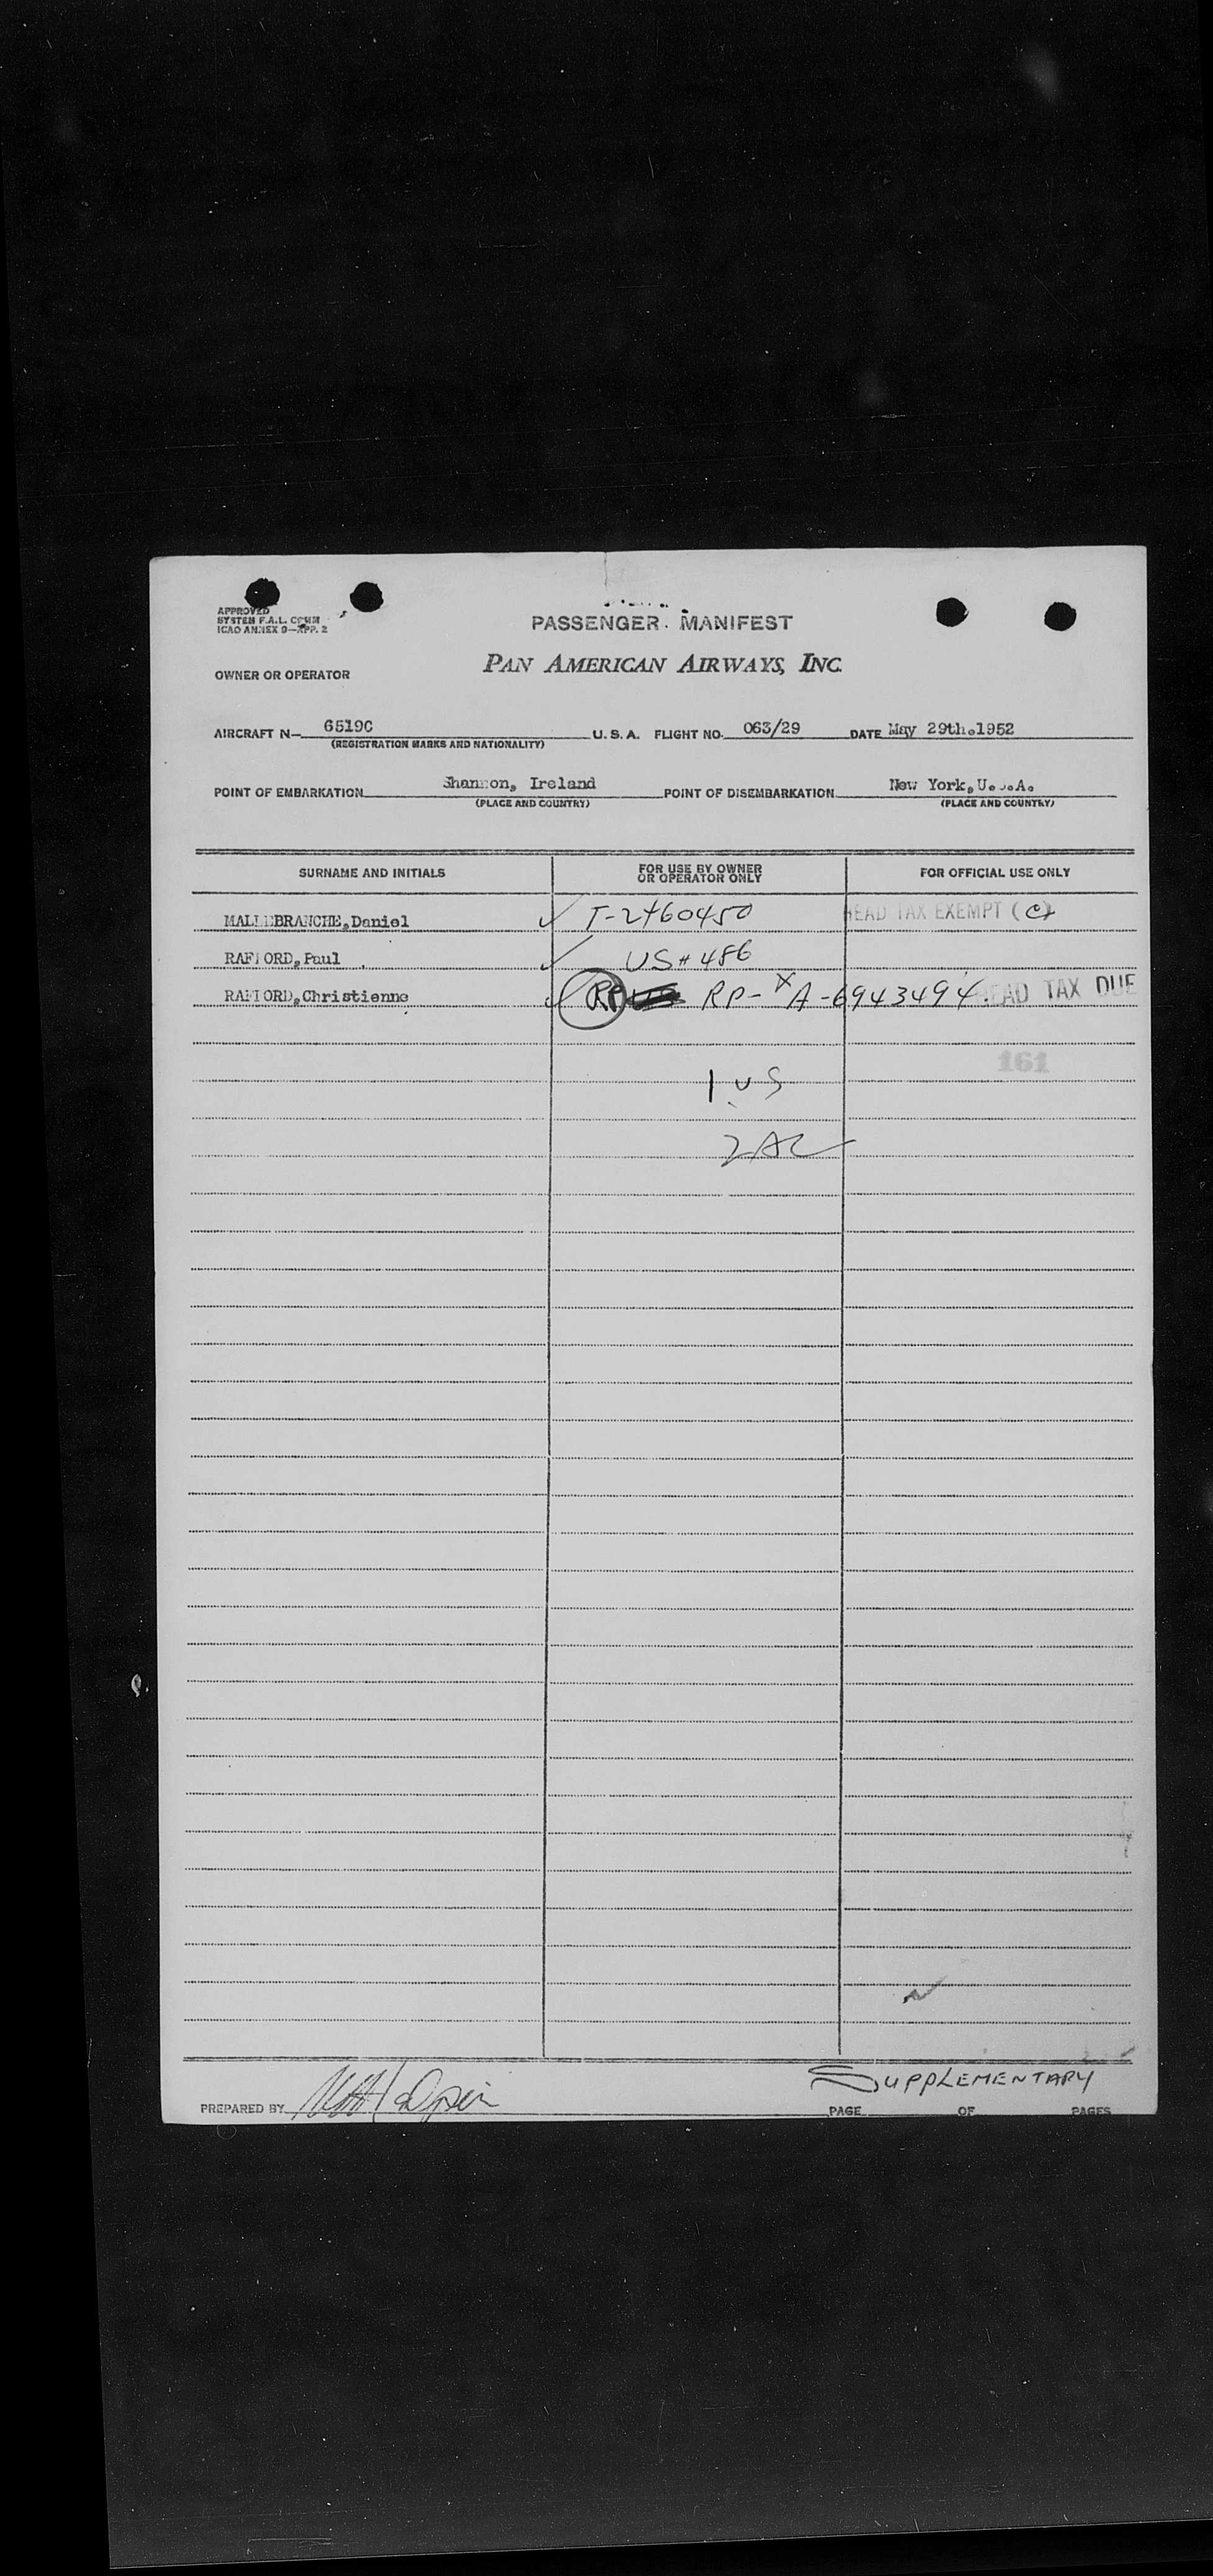 APPROVED
SYSTEM F.A.L. COMM
ICAO ANNEX 9—APP. 2
PASSENGER MANIFEST
PAN AMERICAN AIRWAYS, INC.
OWNER OR OPERATOR
AIRCRAFT N— 6519C U. S. A. FLIGHT NO. 063/29 DATE May 29th.1952
(REGISTRATION MARKS AND NATIONALITY)
POINT OF EMBARKATION Shannon, Ireland POINT OF DISEMBARKATION New York, U.S.A.
(PLACE AND COUNTRY) (PLACE AND COUNTRY)
SURNAME AND INITIALS FOR USE BY OWNER OR OPERATOR ONLY FOR OFFICIAL USE ONLY
MALLEBRANCHE, Daniel ✓ T-2460450 HEAD TAX EXEMPT (C)
RAFFORD, Paul ✓ US # 486
RAFFORD, Christienne ✓ RP RP- X A-6943494. HEAD TAX DUE
161
1 US
2 AL
SUPPLEMENTARY
PREPARED BY PAGE OF PAGES